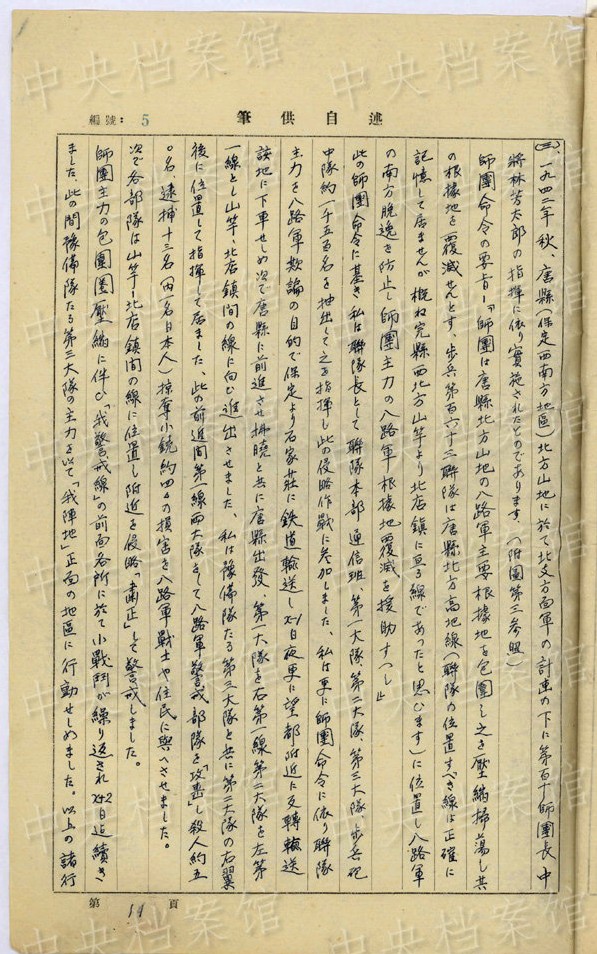 中央档案馆
編號：5
筆供自述
(三)、一九四二年秋、唐縣(保定西南方地區)北方山地に於て北支方面軍の計画の下に第百十師團長 中
將林芳太郎の指揮に依り實施されたものであります。(附圖第三参照)
師團命令の要旨ー「師團は唐縣北方山地の八路軍主要根據地を包圍し之を壓縮掃蕩し其
の根據地を覆滅せんとす、歩兵第百六十三聯隊は唐縣北方高地線(聯隊の位置すべき線は正確に
記憶して居ませんが概ね完縣西北方山竿より北店鎮に亘る線であったと思ひます)に位置し八路軍
の南方脱逸を防止し師團主力の八路軍根據地覆滅を援助すべし」
此の師團命令に基き私は聯隊長として聯隊本部、通信班、第一大隊、第二大隊、第三大隊、歩兵砲
中隊約一千五百名を抽出して之を指揮し此の侵略作戰に参加しました、私は更に師團命令に依り聯隊
主力を八路軍欺諭の目的で保定より石家莊に鉄道輸送しX-1日夜更に望都附近に反轉輸送
該地に下車せしめ次で唐縣に前進させ拂曉と共に唐縣出發、第一大隊を右第一線第二大隊を左第
一線とし山竿、北店鎮間の線に向ひ進出させました、私は豫備隊たる第三大隊と共に第二大隊の右翼
後に位置して指揮して居ました、此の前進間第一線両大隊をして八路軍警戒部隊を「攻撃」し殺人約五
〇名、逮捕十三名(内一名日本人)掠奪小銃約四〇の損害を八路軍戰士や住民に與へさせました。
次で各部隊は山竿ー北店鎮間の線に位置し附近を侵略「粛正」して警戒しました。
師團主力の包圍圏壓縮に伴ひ「我警戒線」の前面各所に於て小戰鬥が繰り返されX+2日迄續き
ました、此の間豫備隊たる第三大隊の主力を以て「我陣地」正面の地區に行動せしめました。以上の諸行
第 11 頁